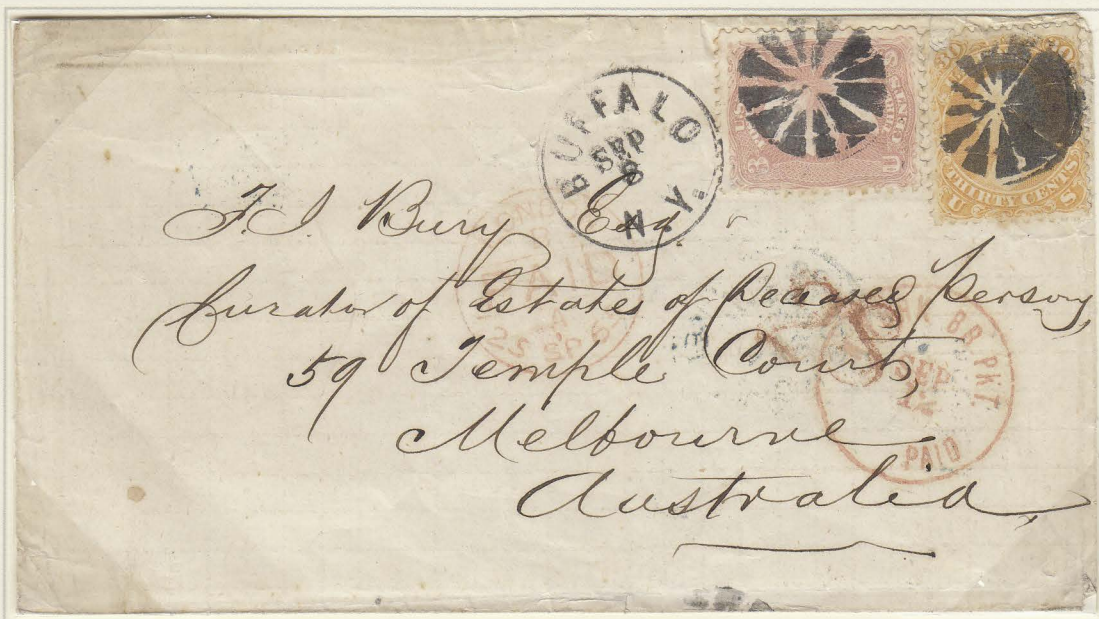 BUFFALO
SEP
8
N.Y.
3
U
30
30
THIRTY CENTS
U S
F. J. Bury Esq.
Curator of Estates of Deceased Persons,
59 Temple Court,
Melbourne
Australia,
PAID
BR PKT
SEP
12
PAID